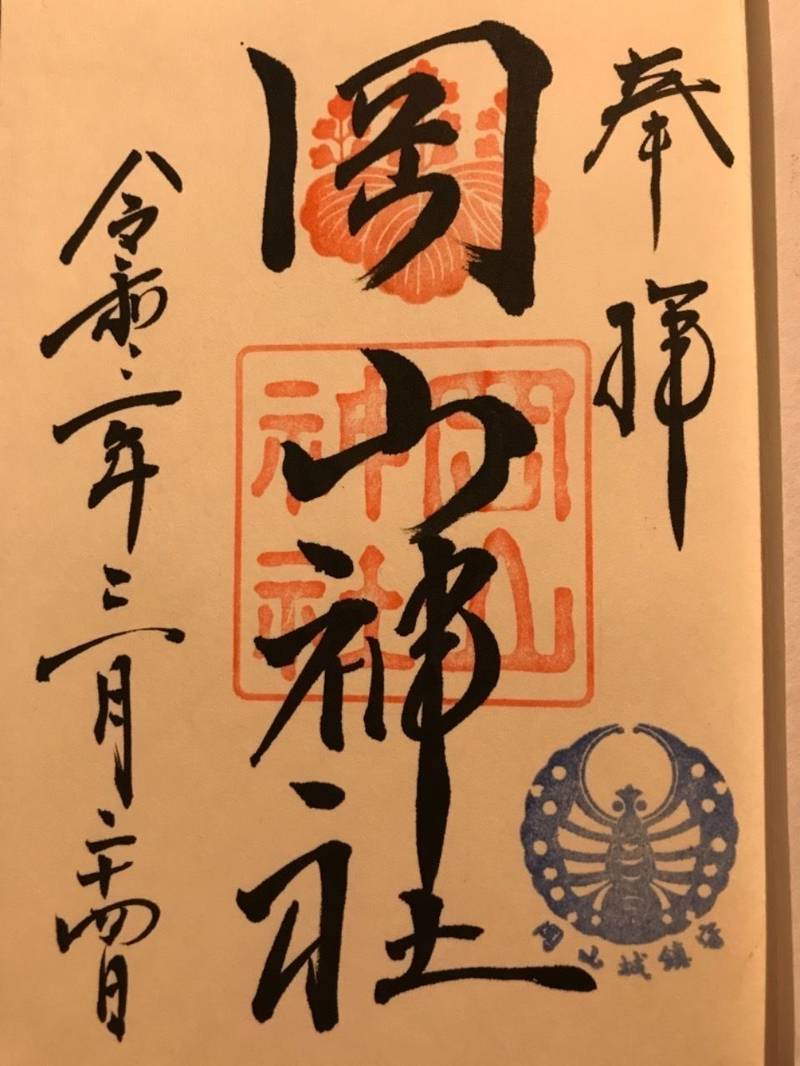 奉拝
岡山神社
岡山
神社
令和二年三月二十四日
岡山城鎮守